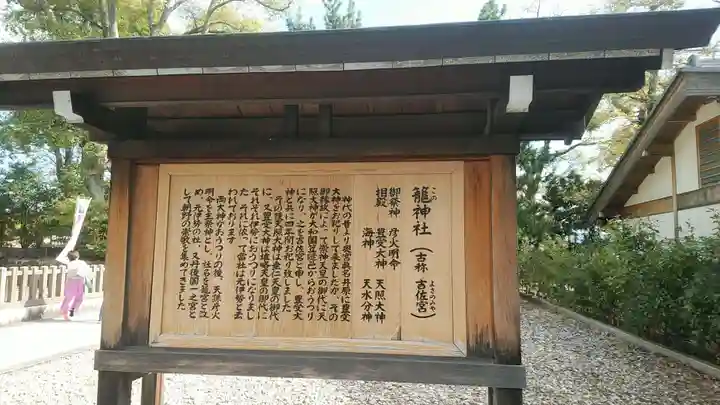 この
籠神社（古称 吉佐宮）
よさのみや
御祭神 彦火明命
相殿 ― 豊受大神 天照大神
海神 天水分神
神代の昔より奥宮眞名井原に豊受
大神をお祀りして来ましたが、その
御縁故によって崇神天皇の御代に天
照大神が大和国笠縫邑からおうつり
になり、之を吉佐宮と申し、豊受大
神と共に四年間お祀り致しました
その後天照大神は垂仁天皇の御代
に、又豊受大神は雄略天皇の御代に
それぞれ伊勢におうつりになりまし
た それに依って当社は元伊勢と云
われて居ります
両大神がおうつりの後、天孫彦火
明命を主祭神とし、社号を籠宮と改
め、元伊勢の社、又丹後国一之宮と
して朝野の崇敬を集めてきました